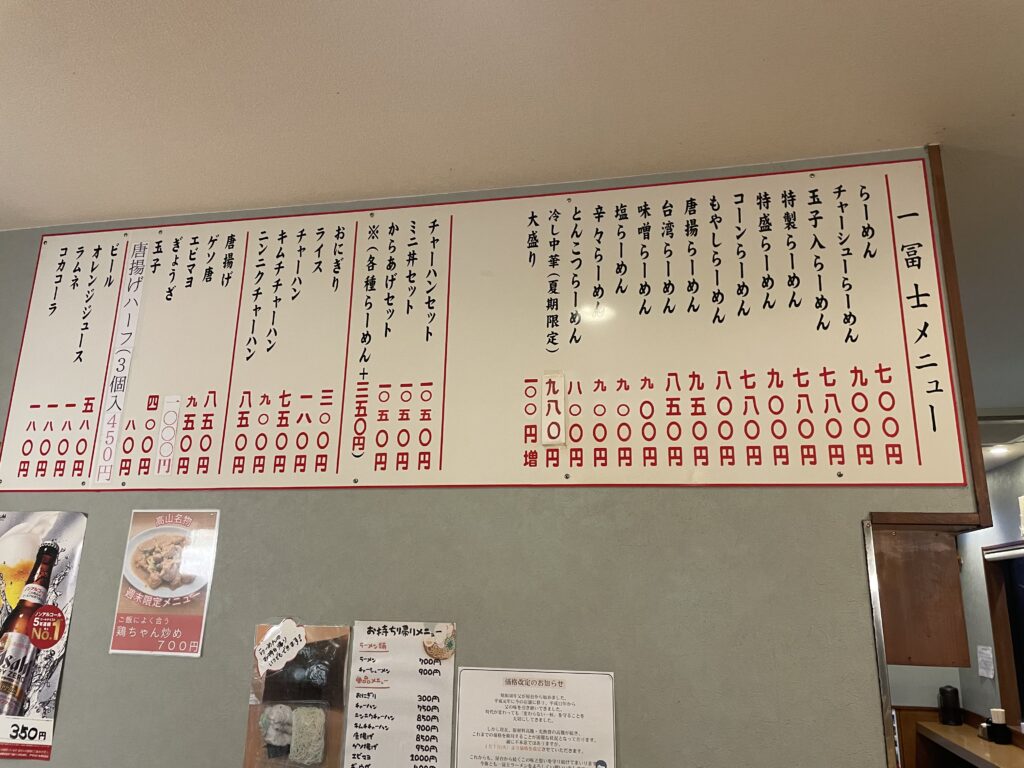 一冨士メニュー
らーめん 七〇〇円
チャーシューらーめん 九〇〇円
玉子入らーめん 七八〇円
特製らーめん 七八〇円
特盛らーめん 九〇〇円
コーンらーめん 七八〇円
もやしらーめん 八〇〇円
唐揚らーめん 九五〇円
台湾らーめん 八五〇円
味噌らーめん 九〇〇円
塩らーめん 九〇〇円
辛々らーめん 九〇〇円
とんこつらーめん 八〇〇円
冷し中華(夏期限定) 九八〇円
大盛り 一〇〇円増
チャーハンセット 一〇五〇円
ミニ丼セット 一〇五〇円
からあげセット 一〇五〇円
※(各種らーめん+三五〇円)
おにぎり 三〇〇円
ライス 一八〇円
チャーハン 七五〇円
キムチチャーハン 九〇〇円
ニンニクチャーハン 八五〇円
唐揚げ 八五〇円
ゲソ唐 九五〇円
エビマヨ 一〇〇〇円
ぎょうざ 四〇〇円
玉子 八〇円
唐揚げハーフ(3個入450円
ビール 五八〇円
オレンジジュース 一八〇円
ラムネ 一八〇円
コカコーラ 一八〇円
ノンアルコール
5年連続
No.1
Asahi
350円
高山名物
週末限定メニュー
ご飯によく合う
鶏ちゃん炒め
700円
お持ち帰りメニュー
ラーメン類
ラーメン 700円
チャーシューメン 900円
単品メニュー
おにぎり 300円
チャーハン 750円
ニンニクチャーハン 850円
キムチチャーハン 900円
唐揚げ 850円
ゲソ揚げ 950円
エビマヨ 1000円
価格改定のお知らせ